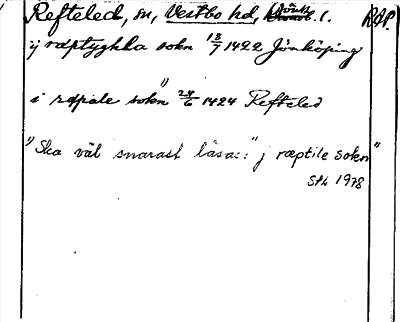 Refteled, sn, Vestbo hd, Jönk. l. RAP.
ij ræptyghla sokn 18/7 1422 Jönköping
i ræpale sokn" 24/6 1424 Refteled
"Ska väl snarast läsas: "j ræptile sokn"
StL 1978